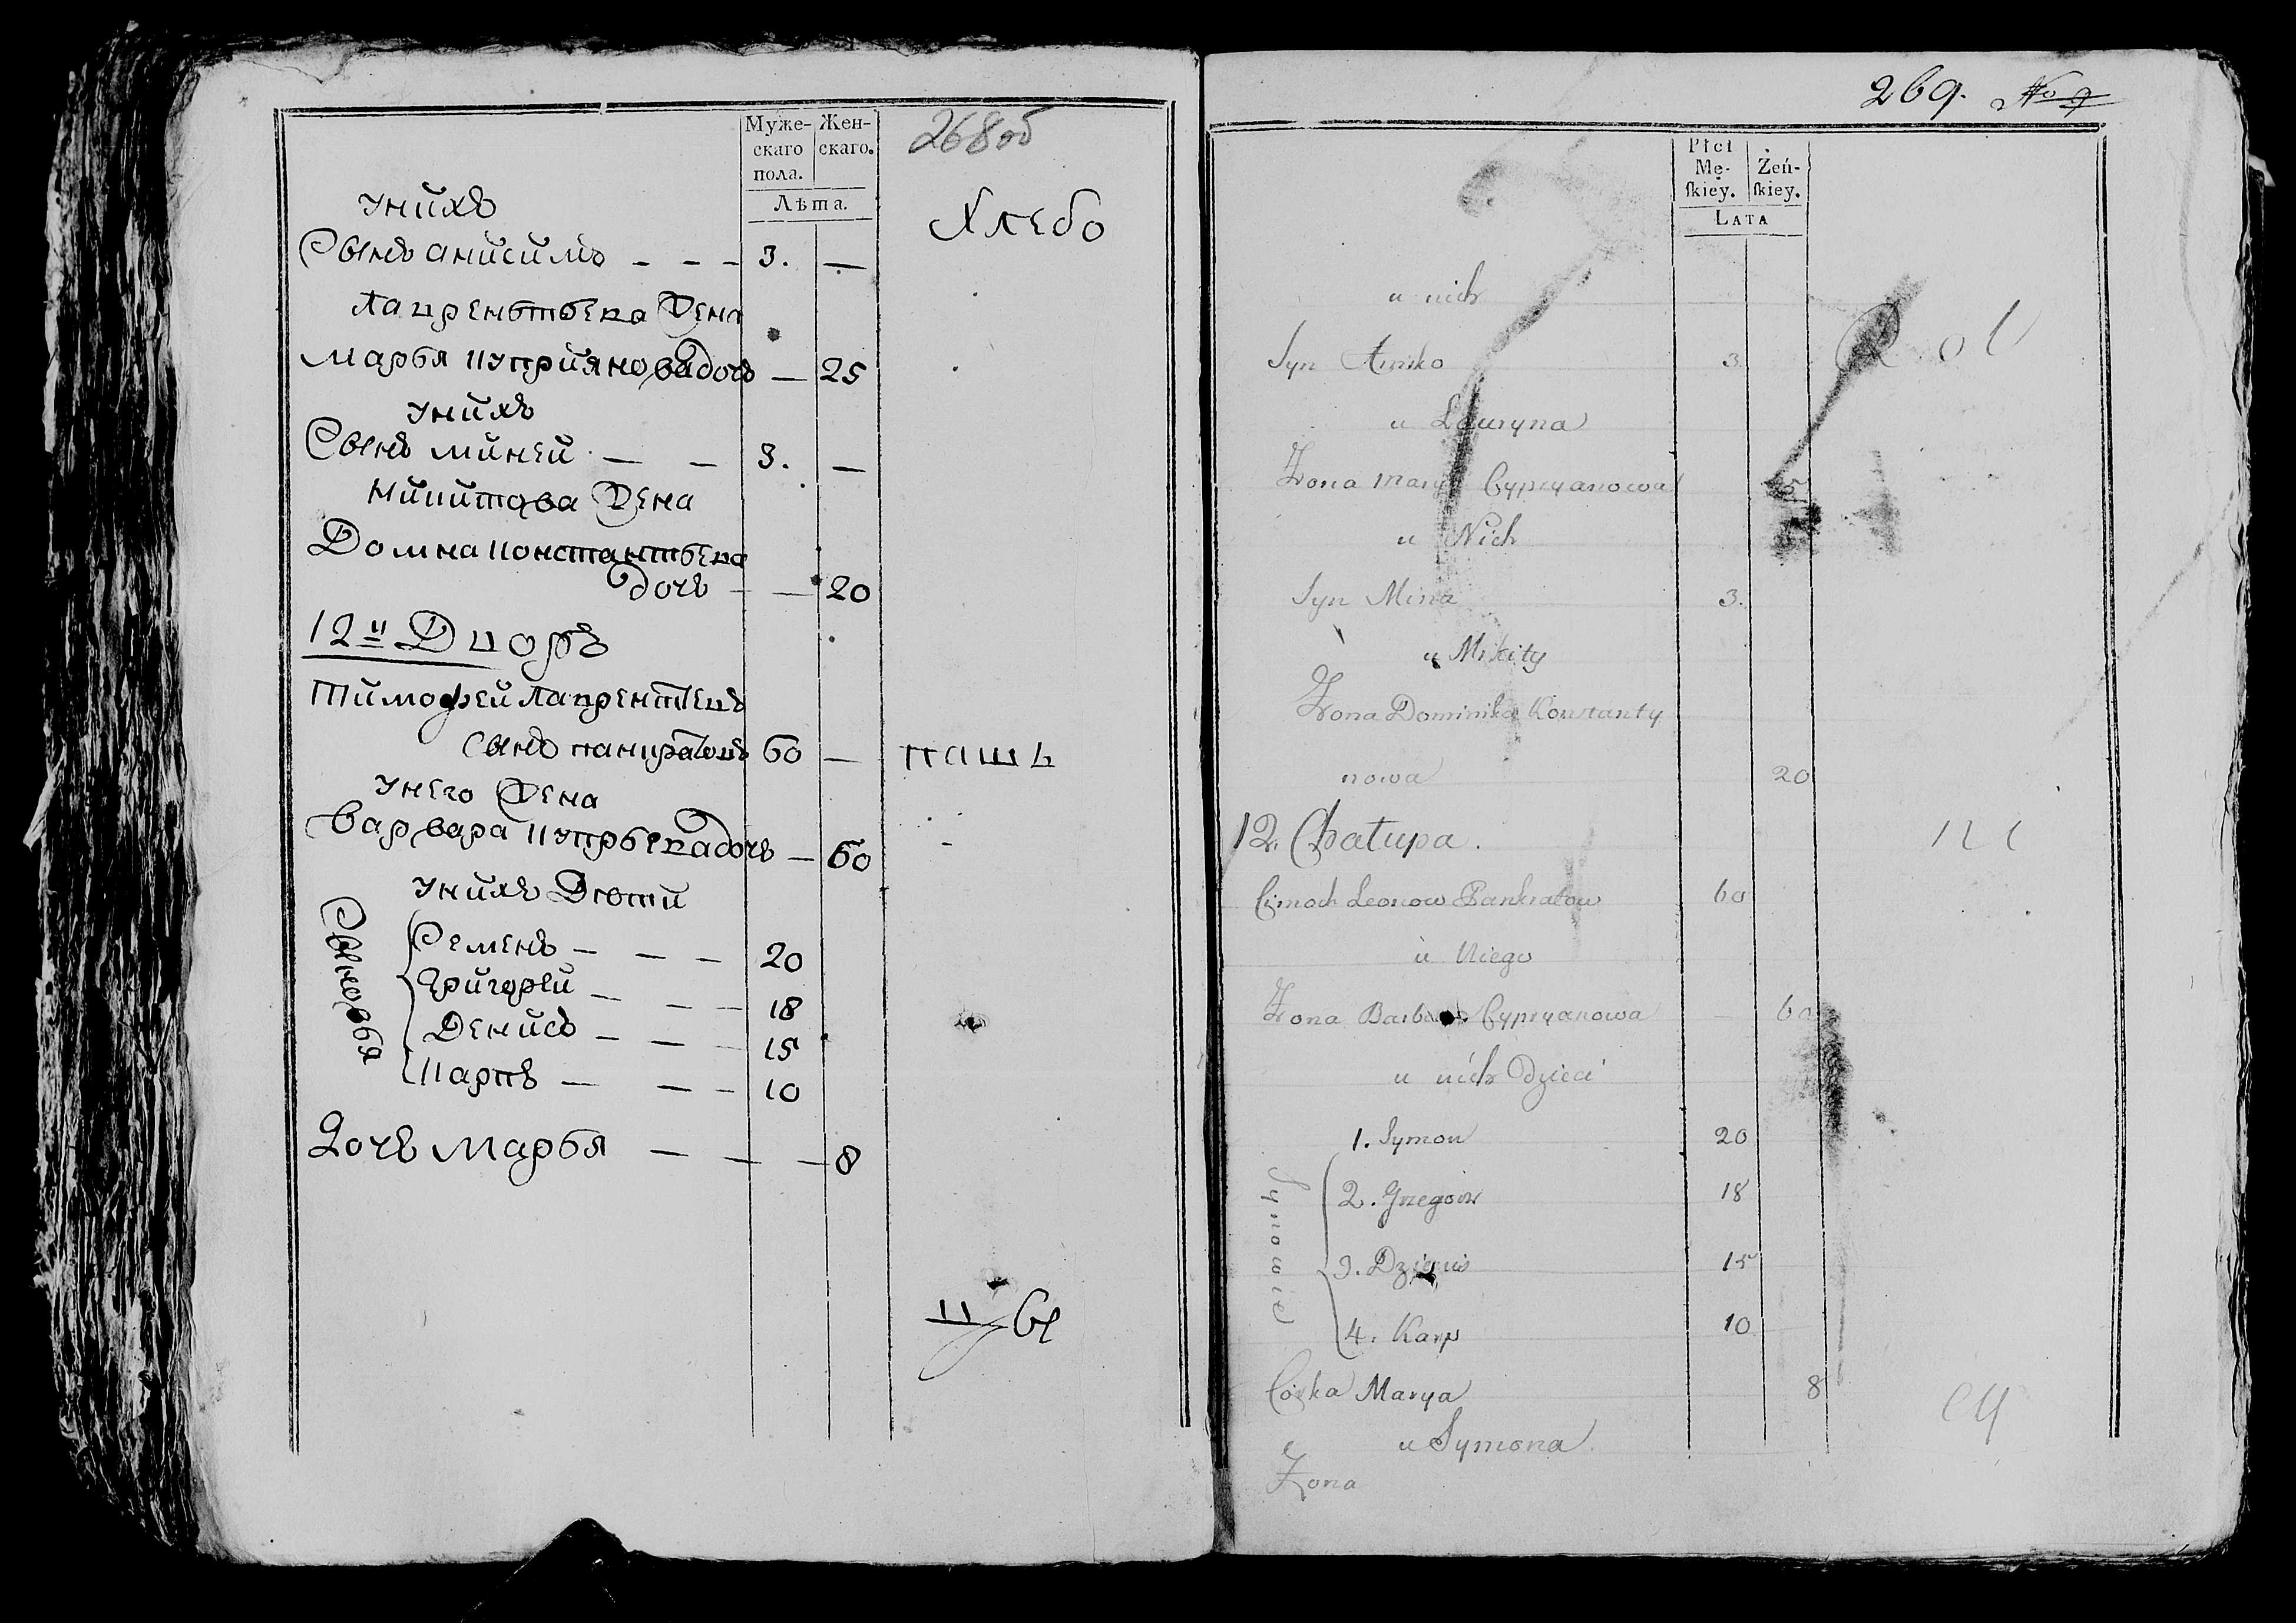 Муже-
скаго
пола.
Жен-
скаго.
Лѣта.
268об
Хлебо
унихъ
Сынъ анисимъ — — — 3. —
Лаврентьева Жена
Марья Куприянова дочь — 25
унихъ
Сынъ миней — — 3. —
Никитова Жена
Домна Константьева
дочь — — 20
12й Дворъ
Тимофей Лаврентьевъ
сынъ панкратовъ 60 — пашъ
унего Жена
Варвара Купрьева дочь — 60
унихъ Дѣти
Сыновья
Семенъ — — — 20
Григорей — — — 18
Денисъ — — — 15
Карпъ — — — 10
Дочь Марья — — — 8
цы
269. No 9
Płci
Mę-
skiéy.
Żeń-
skiey.
LATA
u nich
Syn Aniśko 3.
u Ławryna
Żona Marya Cypryanowa
u Nich
Syn Mina 3.
u Mikity
Żona Dominika Konstanty
nowa 20
12. Chałupa.
Cimoch Leonow Pankratow 60
u Niego
Żona Barbara Cypryanowa — 60
u nich Dzieci
Synowie
1. Symon 20
2. Grzegorz 18
3. Dzienis 15
4. Karp 10
Córka Marya 8
u Symona
Żona